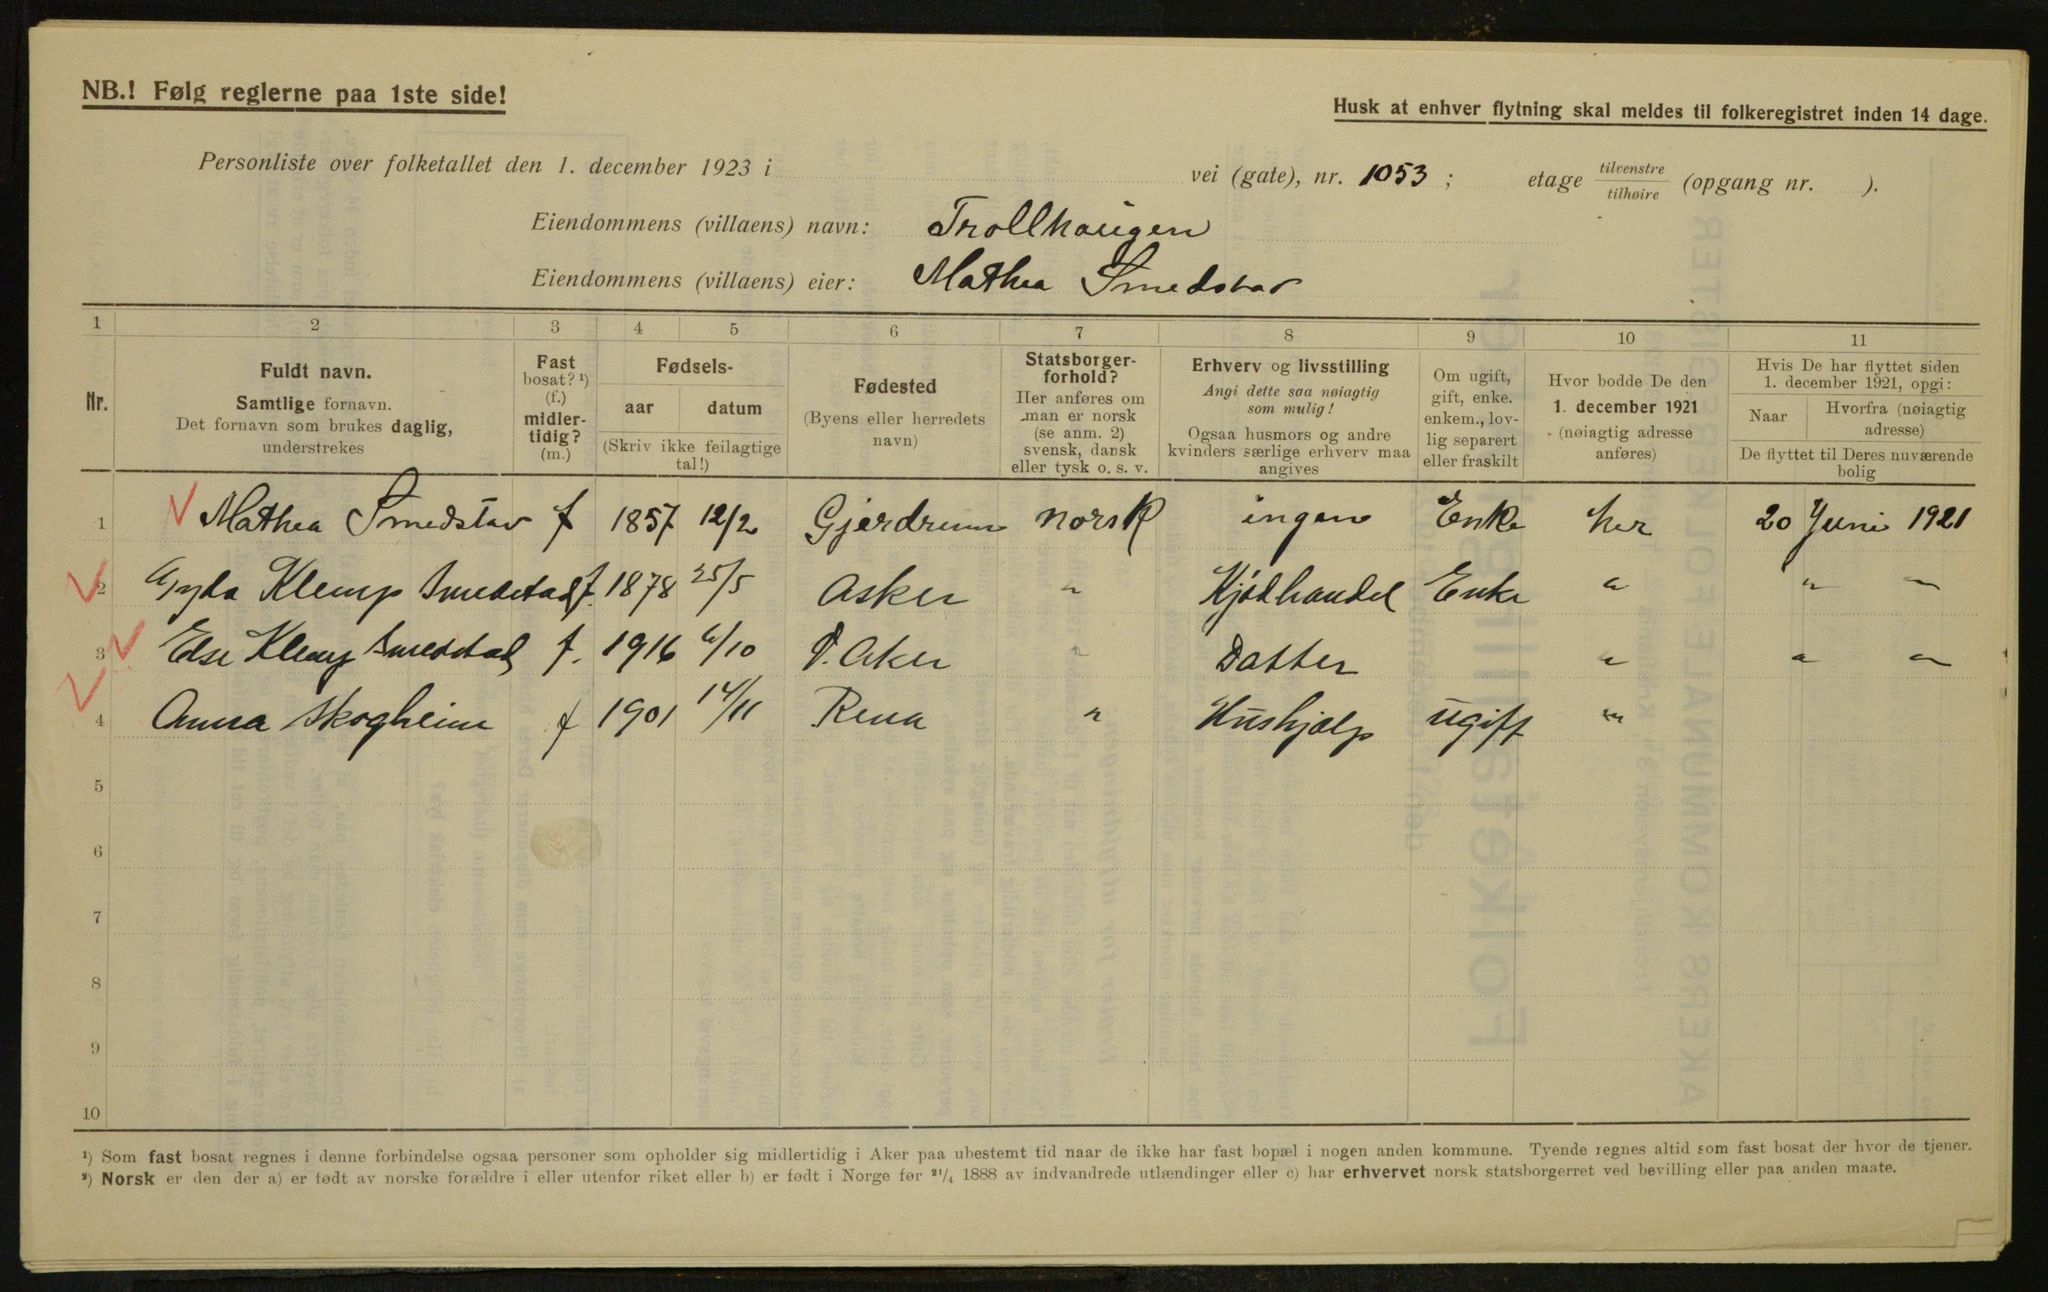 NB.! Følg reglerne paa 1ste side!
Husk at enhver flytning skal meldes til folkeregistret inden 14 dage.
Personliste over folketallet den 1. december 1923 i vei (gate), nr. 1053 ; etage tilvenstre / tilhøire (opgang nr. ).
Eiendommens (villaens) navn: Trollhaugen
Eiendommens (villaens) eier: Mathea Smedstad
1 2 3 4 5 6 7 8 9 10 11
Nr.
Fuldt navn.
Samtlige fornavn.
Det fornavn som brukes daglig,
understrekes
Fast
bosat? ¹)
(f.)
midler-
tidig?
(m.)
Fødsels-
aar datum
(Skriv ikke feilagtige
tal!)
Fødested
(Byens eller herredets
navn)
Statsborger-
forhold?
Her anføres om
man er norsk
(se anm. 2)
svensk, dansk
eller tysk o. s. v.
Erhverv og livsstilling
Angi dette saa nøiagtig
som mulig!
Ogsaa husmors og andre
kvinders særlige erhverv maa
angives
Om ugift,
gift, enke.
enkem., lov-
lig separert
eller fraskilt
Hvor bodde De den
1. december 1921
(nøiagtig adresse
anføres)
Hvis De har flyttet siden
1. december 1921, opgi:
Naar Hvorfra (nøiagtig
adresse)
De flyttet til Deres nuværende
bolig
1 Mathea Smedstad f 1857 12/2 Gjerdrum norsk ingen Enke her 20 Juni 1921
2 Gyda Klemp Smedstad f. 1878 25/5 Asker " Kjødhandel Enke " " "
3 Else Klemp Smedstad f. 1916 6/10 V. Aker " Datter " " "
4 Anna Skogheim f 1901 14/11 Rena " Hushjælp ugift "
5
6
7
8
9
10
¹) Som fast bosat regnes i denne forbindelse ogsaa personer som opholder sig midlertidig i Aker paa ubestemt tid naar de ikke har fast bopæl i nogen anden kommune. Tyende regnes altid som fast bosat der hvor de tjener.
²) Norsk er den der a) er født av norske forældre i eller utenfor riket eller b) er født i Norge før ²¹/₄ 1888 av indvandrede utlændinger eller c) har erhvervet norsk statsborgerret ved bevilling eller paa anden maate.